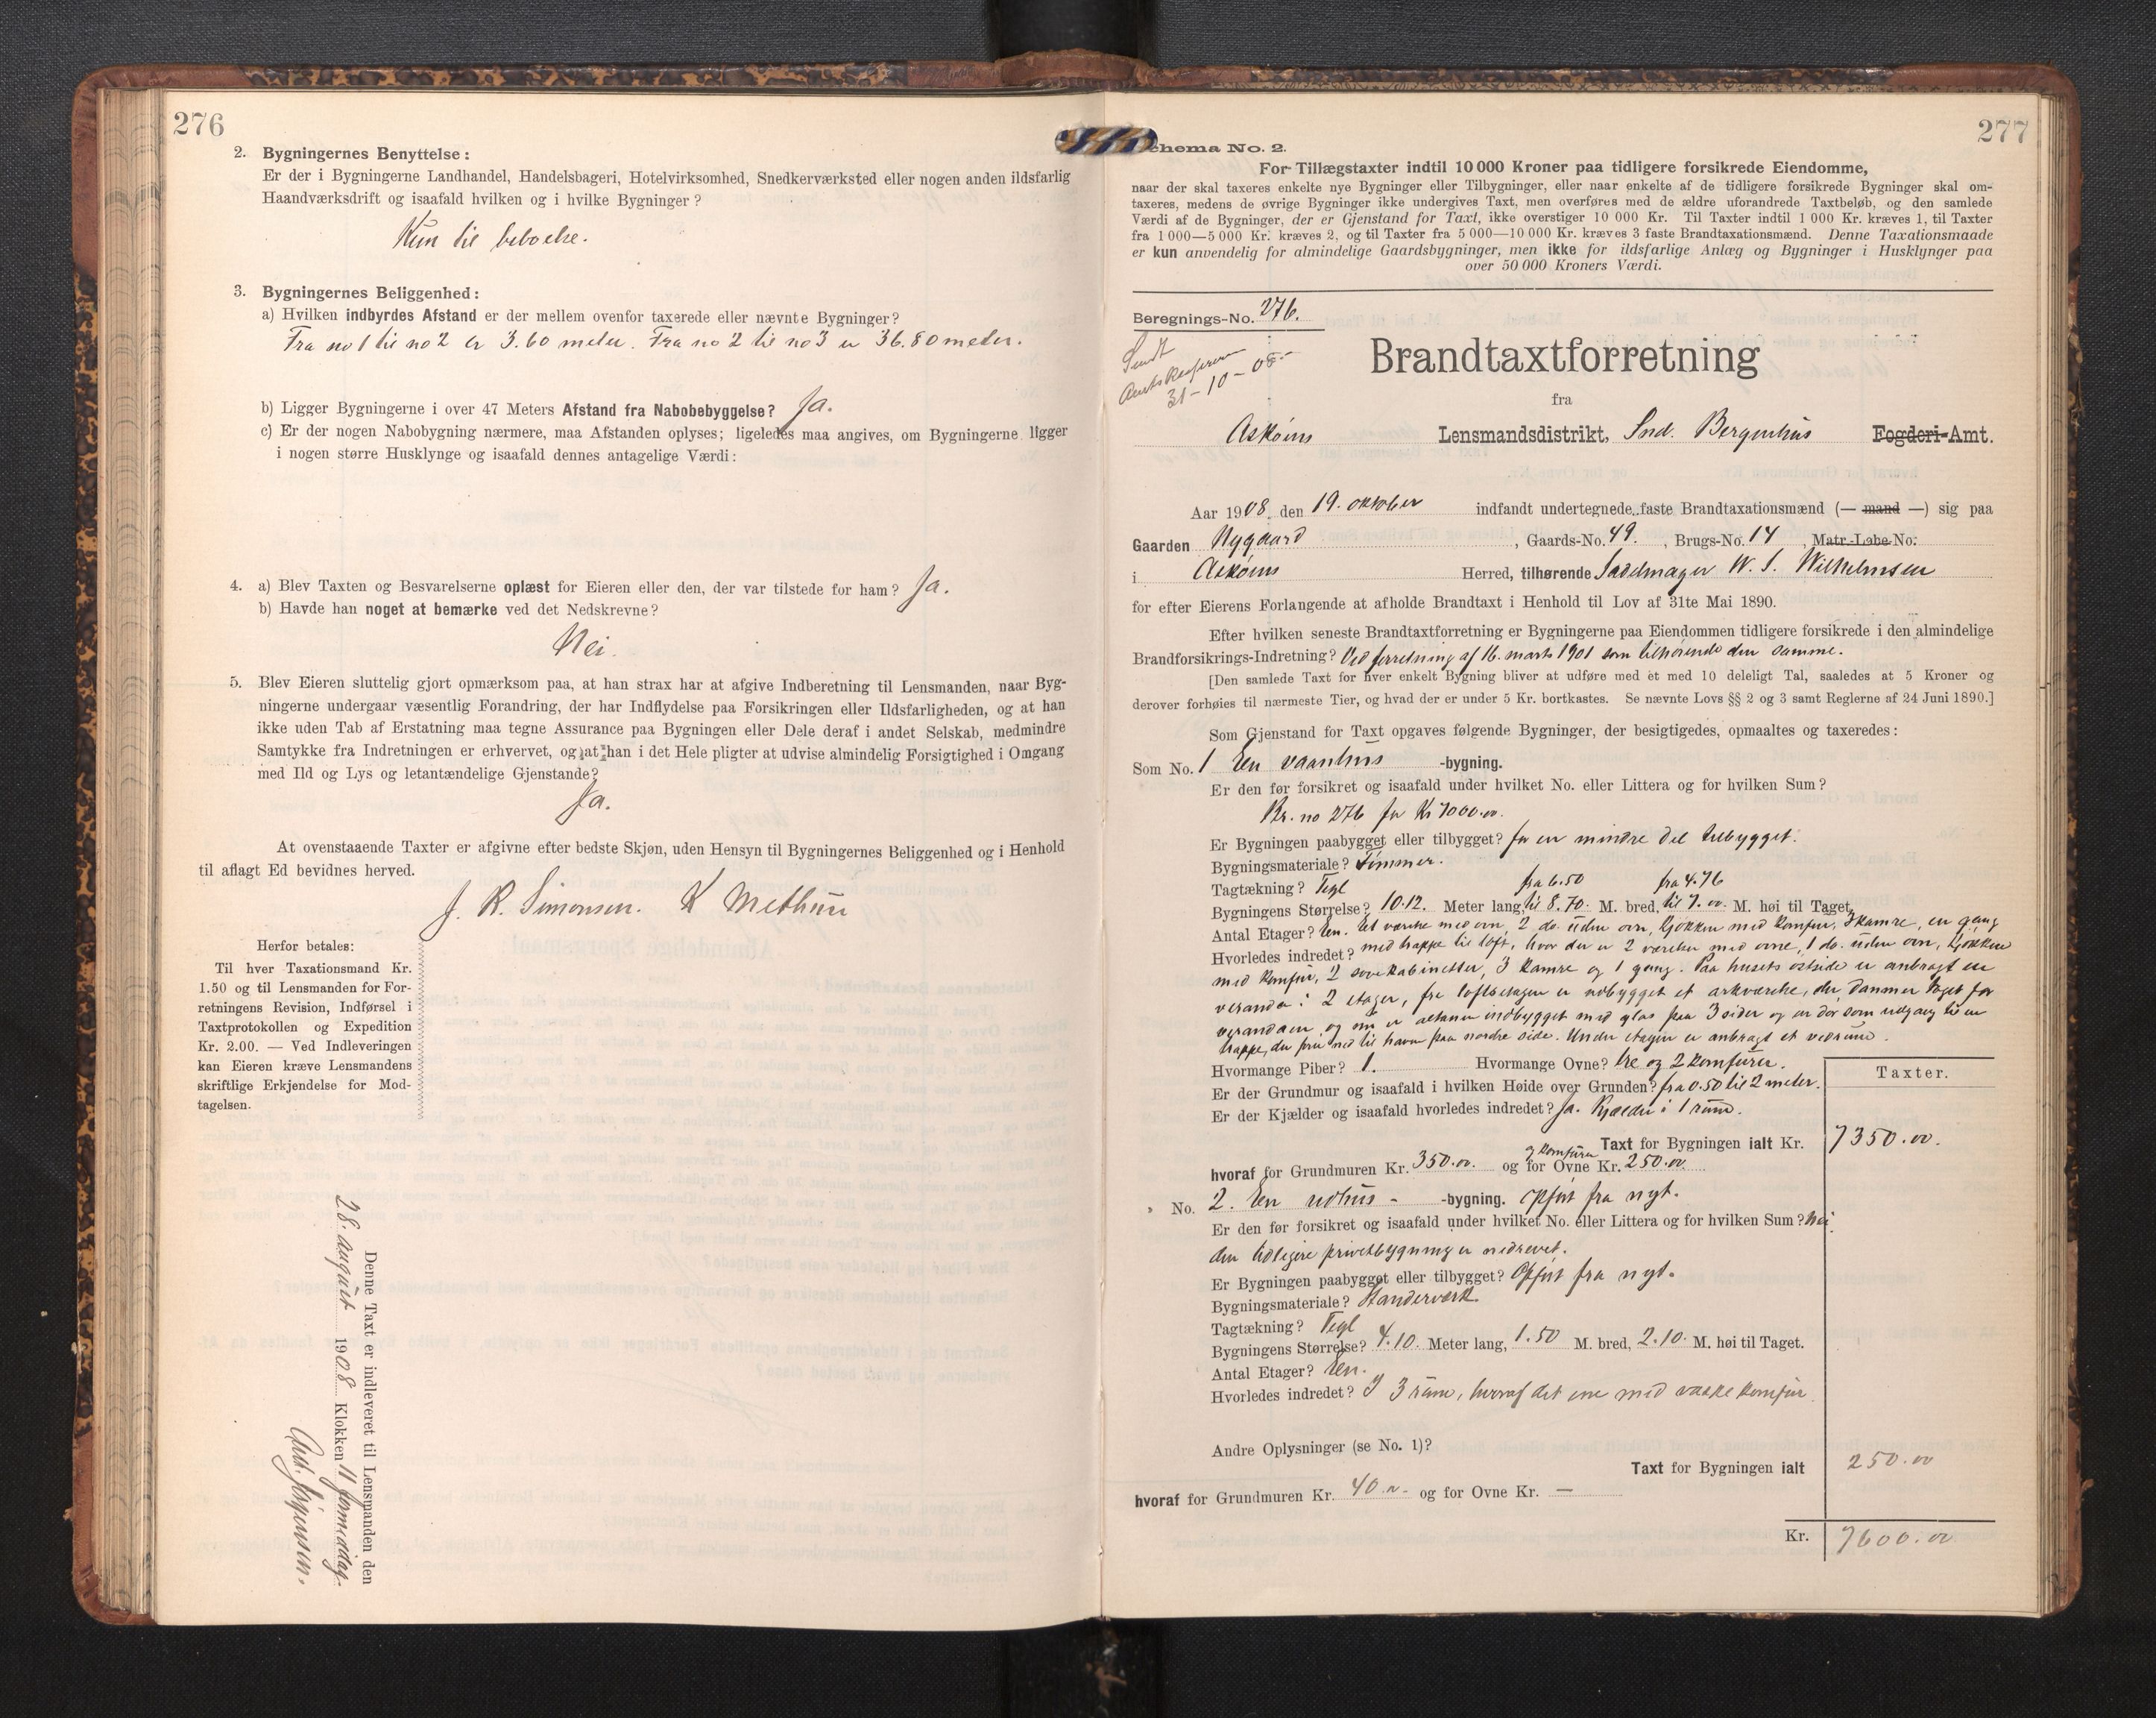 276
2. Bygningernes Benyttelse:
Er der i Bygningerne Landhandel, Handelsbageri, Hotelvirksomhed, Snedkerværksted eller nogen anden ildsfarlig
Haandværksdrift og isaafald hvilken og i hvilke Bygninger?
Kun til beboelse.
3. Bygningernes Beliggenhed:
a) Hvilken indbyrdes Afstand er der mellem ovenfor taxerede eller nævnte Bygninger?
Fra no 1 til no 2 er 3.60 meter. Fra no 2 til no 3 er 36.80 meter.
b) Ligger Bygningerne i over 47 Meters Afstand fra Nabobebyggelse? Ja.
c) Er der nogen Nabobygning nærmere, maa Afstanden oplyses; ligeledes maa angives, om Bygningerne ligger
i nogen større Husklynge og isaafald dennes antagelige Værdi:
4. a) Blev Taxten og Besvarelserne oplæst for Eieren eller den, der var tilstede for ham? Ja.
b) Havde han noget at bemærke ved det Nedskrevne?
Nei.
5. Blev Eieren sluttelig gjort opmærksom paa, at han strax har at afgive Indberetning til Lensmanden, naar Byg-
ningerne undergaar væsentlig Forandring, der har Indflydelse paa Forsikringen eller Ildsfarligheden, og at han
ikke uden Tab af Erstatning maa tegne Assurance paa Bygningen eller Dele deraf i andet Selskab, medmindre
Samtykke fra Indretningen er erhvervet, og at han i det Hele pligter at udvise almindelig Forsigtighed i Omgang
med Ild og Lys og letantændelige Gjenstande?
Ja.
At ovenstaaende Taxter er afgivne efter bedste Skjøn, uden Hensyn til Bygningernes Beliggenhed og i Henhold
til aflagt Ed bevidnes herved.
J. R. Simonsen. K Methun
Herfor betales:
Til hver Taxationsmand Kr.
1.50 og til Lensmanden for For-
retningens Revision, Indførsel i
Taxtprotokollen og Expedition
Kr. 2.00. — Ved Indleveringen
kan Eieren kræve Lensmandens
skriftlige Erkjendelse for Mod-
tagelsen.
Denne Taxt er indleveret til Lensmanden den
28. august 1908 Klokken 11 formiddag.
277
Schema No. 2.
For Tillægstaxter indtil 10 000 Kroner paa tidligere forsikrede Eiendomme,
naar der skal taxeres enkelte nye Bygninger eller Tilbygninger, eller naar enkelte af de tidligere forsikrede Bygninger skal om-
taxeres, medens de øvrige Bygninger ikke undergives Taxt, men overføres med de ældre uforandrede Taxtbeløb, og den samlede
Værdi af de Bygninger, der er Gjenstand for Taxt, ikke overstiger 10 000 Kr. Til Taxter indtil 1 000 Kr. kræves 1, til Taxter
fra 1 000—5 000 Kr. kræves 2, og til Taxter fra 5 000—10 000 Kr. kræves 3 faste Brandtaxationsmænd. Denne Taxationsmaade
er kun anvendelig for almindelige Gaardsbygninger, men ikke for ildsfarlige Anlæg og Bygninger i Husklynger paa
over 50 000 Kroners Værdi.
Beregnings-No. 276.
Sendt
31-10-08
Brandtaxtforretning
fra
Askøens Lensmandsdistrikt, Snd. Bergenhus Fogderi-Amt.
Aar 1908 den 19. oktober indfandt undertegnede faste Brandtaxationsmænd (— mand —) sig paa
Gaarden Nygaard, Gaards-No. 49., Brugs-No. 14, Matr.-Løbe-No.
i Askøens Herred, tilhørende Sadelmager W. S. Wilhelmsen
for efter Eierens Forlangende at afholde Brandtaxt i Henhold til Lov af 31te Mai 1890.
Efter hvilken seneste Brandtaxtforretning er Bygningerne paa Eiendommen tidligere forsikrede i den almindelige
Brandforsikrings-Indretning? Ved forretning af 16. marts 1901 som tilhørende den samme.
[Den samlede Taxt for hver enkelt Bygning bliver at udføre med et med 10 deleligt Tal, saaledes at 5 Kroner og
derover forhøies til nærmeste Tier, og hvad der er under 5 Kr. bortkastes. Se nævnte Lovs §§ 2 og 3 samt Reglerne af 24 Juni 1890.]
Som Gjenstand for Taxt opgaves følgende Bygninger, der besigtigedes, opmaaltes og taxeredes:
Som No. 1 En vaanhus -bygning.
Er den før forsikret og isaafald under hvilket No. eller Littera og for hvilken Sum?
Br. no 276 for Kr 7000.00.
Er Bygningen paabygget eller tilbygget? Ja en mindre del tilbygget.
Bygningsmateriale? Tømmer.
Tagtækning? Tegl fra 6.50 fra 4.76
Bygningens Størrelse? 10.12. Meter lang, til 8.70. M. bred, til 7.00 M. høi til Taget.
Antal Etager? En. Et værelse med ovn, 2 do. uden ovn, kjøkken med komfur, 3 kamre, en gang
Hvorledes indredet? med trappe til loft, hvor der er 2 værelser med ovne, 1 do. uden ovn, kjøkken
med komfur, 2 sovekabinetter, 3 kamre og 1 gang. Paa husets østside er anbragt en
veranda i 2 etager, fra loftsetagen er udbygget et arkværelse, der danner taget for
verandaen, og er altanen indbygget med glas paa 3 sider og en dør som udgang til en
trappe, der fører ned til haven paa nordre side. Under etagen er anbragt et vedrum.
Hvormange Piber? 1. Hvormange Ovne? tre og 2 komfurer.
Er der Grundmur og isaafald i hvilken Høide over Grunden? fra 0.50 til 2 meter.
Er der Kjælder og isaafald hvorledes indredet? Ja. Kjælder i 1 rum.
Taxter.
Taxt for Bygningen ialt Kr. 7350.00.
og komfurer
hvoraf for Grundmuren Kr. 350.00. og for Ovne Kr. 250.00
" No. 2. En udhus - -bygning. Opført fra nyt.
Er den før forsikret og isaafald under hvilket No. eller Littera og for hvilken Sum? Nei.
den tidligere privetbygning er nedrevet.
Er Bygningen paabygget eller tilbygget? Opført fra nyt.
Bygningsmateriale? Standerværk.
Tagtækning? Tegl
Bygningens Størrelse? 4.10. Meter lang, 1.50 M. bred, 2.10. M. høi til Taget.
Antal Etager? En.
Hvorledes indredet? I 3 rum, hvoraf det ene med vaskekomfur.
Andre Oplysninger (se No. 1)?
Taxt for Bygningen ialt 250.00
hvoraf for Grundmuren Kr. 40.00 og for Ovne Kr. —
Kr. 7600.00